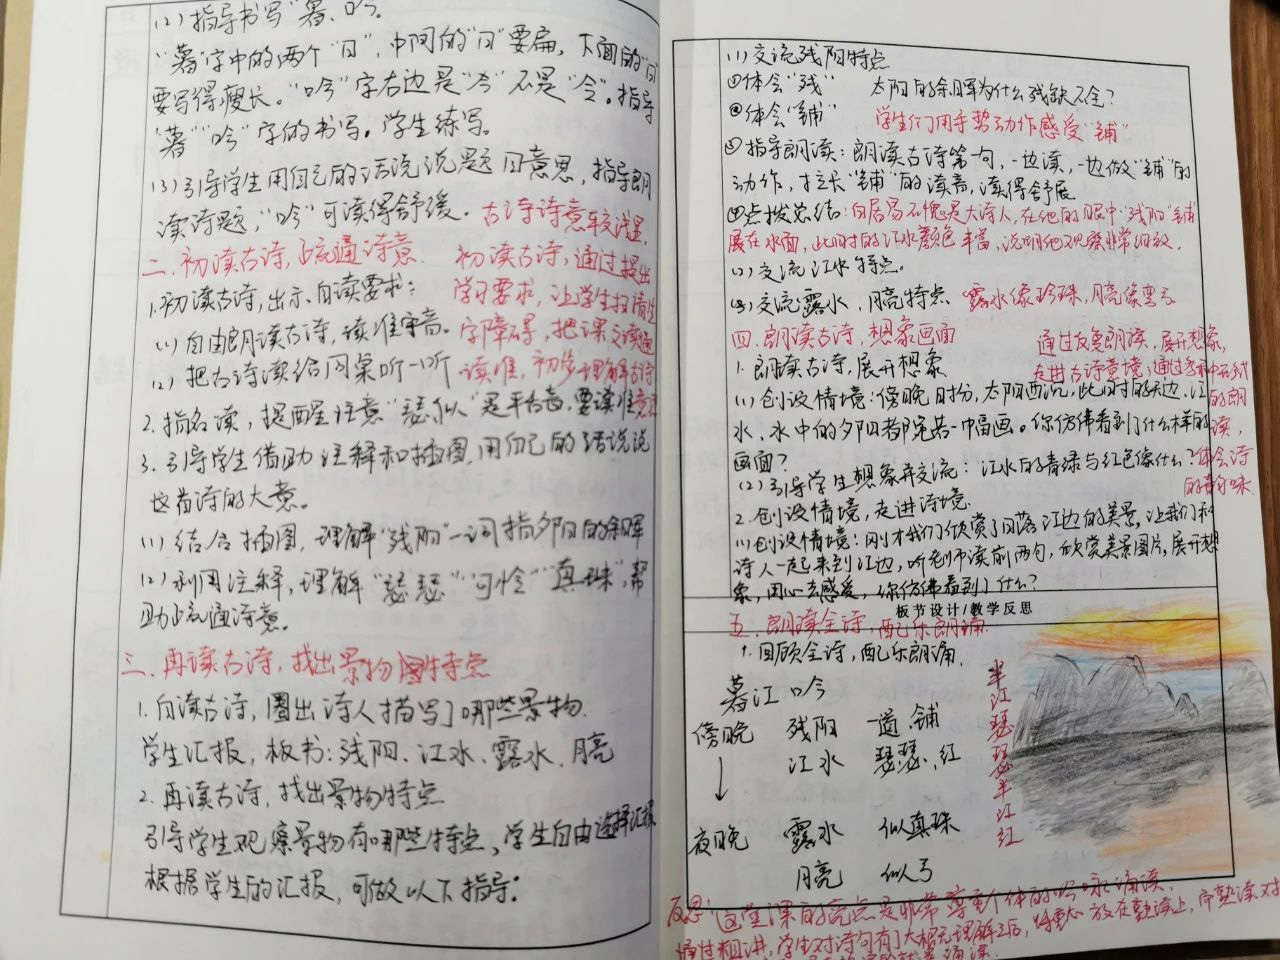 (2)指导书写"暮、吟。
"暮"字中的两个"日",中间的"日"要扁,下面的"日
要写得瘦长。"吟"字右边是"今"不是"令"。指导
"暮""吟"字的书写。学生练写。
(3)引导学生用自己的话说说题目意思,指导朗
读诗题,"吟"可读得舒缓。
古诗诗意较浅显,
二、初读古诗,疏通诗意
初读古诗,通过提出
1.初读古诗,出示自读要求:
学习要求,让学生扫清生
(1)自由朗读古诗,读准字音。
字障碍,把课文读通
(2)把古诗读给同桌听一听
读准,初步理解古诗
2.指名读,提醒注意"瑟、似"是平舌音,要读准
意思
3.引导学生借助注释和插图,用自己的话说说
这首诗的大意。
(1)结合插图,理解"残阳"一词指夕阳的余晖
(2)利用注释,理解"瑟瑟""可怜""真珠",帮
助疏通诗意。
三、再读古诗,找出景物特点
1.自读古诗,圈出诗人描写了哪些景物.
学生汇报,板书:残阳、江水、露水、月亮
2.再读古诗,找出景物特点
引导学生观察景物有哪些特点,学生自由选择汇报
根据学生的汇报,可做以下指导:
(1)交流残阳特点
①体会"残" 太阳的余晖为什么残缺不全?
②体会"铺" 学生们用手势动作感受"铺"
③指导朗读:朗读古诗第一句,一边读,一边做"铺"的
动作,拉长"铺"的读音,读得舒展
④点拨总结:白居易不愧是大诗人,在他的眼中"残阳"铺
展在水面,此时的江水颜色丰富,说明他观察非常细致。
(2)交流江水特点。
(3)交流露水、月亮特点 露水像珍珠,月亮像弯弓
四、朗读古诗,想象画面
通过反复朗读,展开想象,
1.朗读古诗,展开想象
走进古诗意境,通过多种形式
(1)创设情境:傍晚时分,太阳西沉,此时的天边、江
的朗
水、水中的夕阳都宛若一幅画。你仿佛看到了什么样的
读,
画面?
(2)引导学生想象并交流:江水的青绿与红色像什么?
体会诗
的韵味
2.创设情境,走进诗境.
(1)创设情境:刚才我们欣赏了日落江边的美景,让我们和
诗人一起来到江边,听老师读前两句,欣赏美景图片,展开想
象,用心去感受,你仿佛看到了什么?
板书设计/教学反思
五、朗读全诗,配乐朗诵.
1.回顾全诗,配乐朗诵.
暮江吟
傍晚 残阳 一道、铺
江水 瑟瑟、红
↓
夜晚 露水 似真珠
月亮 似弓
半江瑟瑟半江红
反思:这堂课的亮点是非常尊重个体的吟咏诵读,
通过粗讲,学生对诗句有了大概理解之后,将重心放在熟读上,